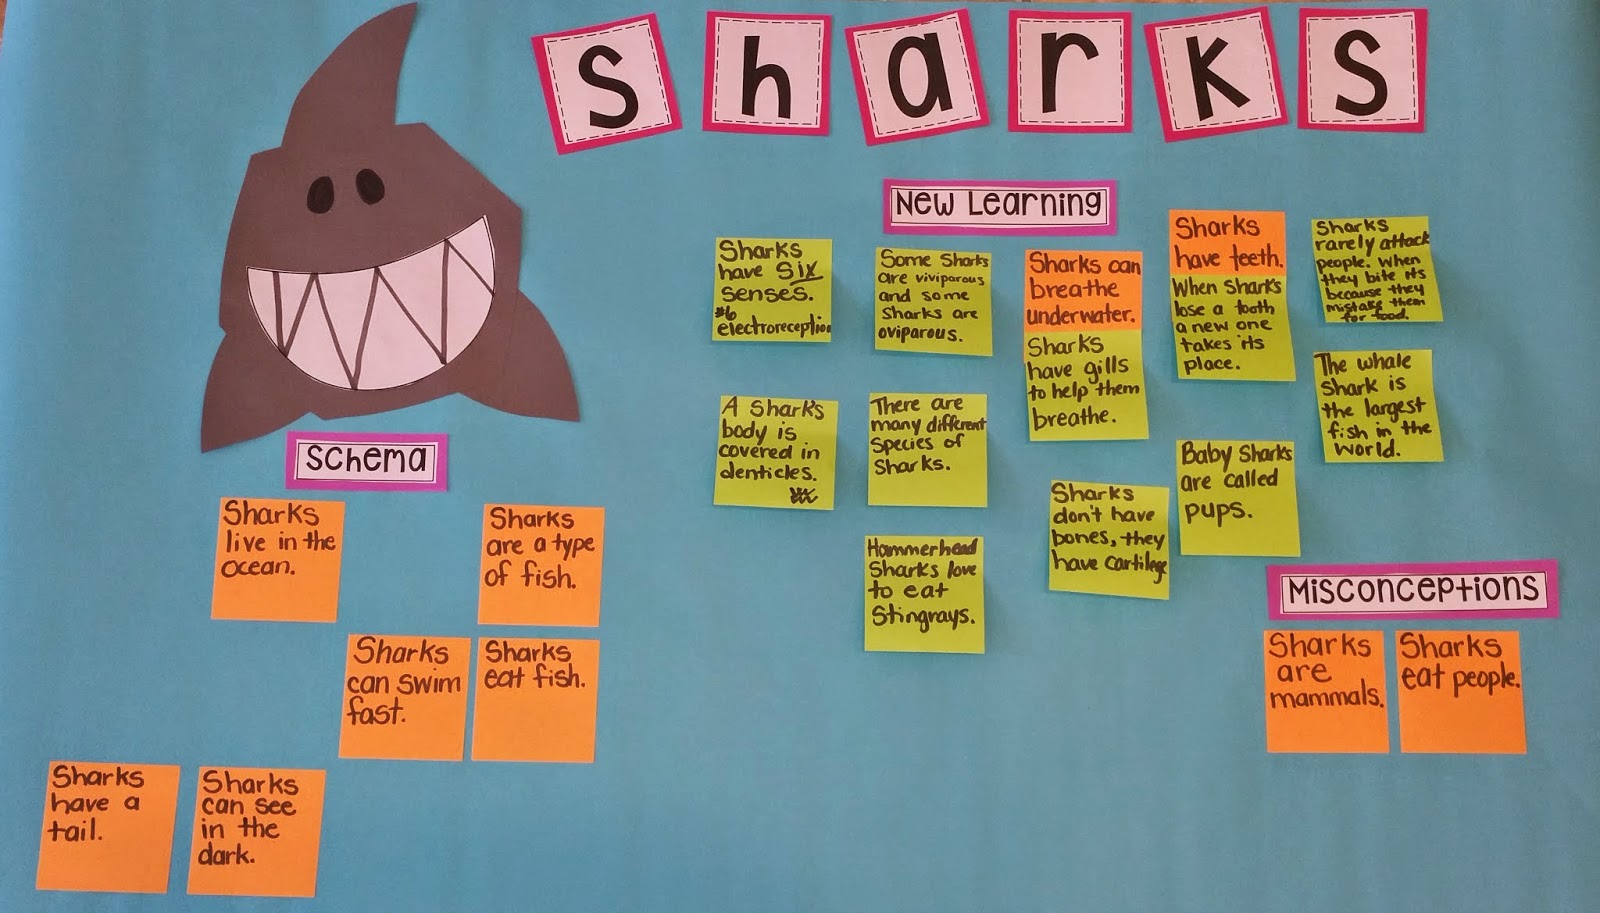 Sharks
Schema
Sharks
live in the
ocean.
Sharks
are a type
of fish.
Sharks
can swim
fast.
Sharks
eat fish.
Sharks
have a
tail.
Sharks
can see
in the
dark.
New Learning
Sharks
have six
senses.
#6
electroreception
Some Sharks
are viviparous
and some
Sharks are
oviparous.
Sharks can
breathe
underwater.
Sharks
have gills
to help them
breathe.
Sharks
have teeth.
When Sharks
lose a tooth
a new one
takes its
place.
Sharks
rarely attack
people. When
they bite its
because they
mistake them
for food.
A Shark's
body is
covered in
denticles.
There are
many different
Species of
Sharks.
The whale
Shark is
the largest
fish in the
world.
Baby Sharks
are called
pups.
Sharks
don't have
bones, they
have cartilege
Hammerhead
Sharks love
to eat
Stingrays.
Misconceptions
Sharks
are
mammals.
Sharks
eat people.